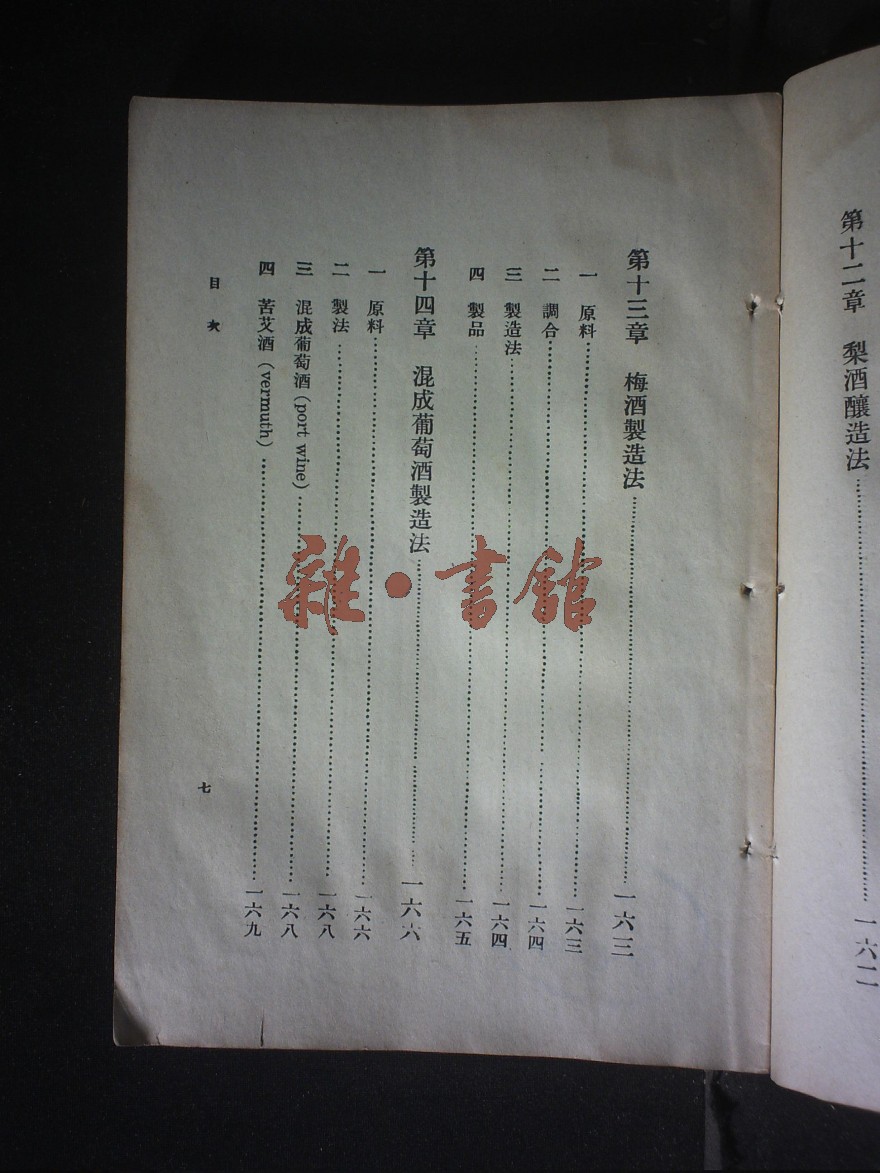 第十二章　梨酒釀造法………………一六二
第十三章　梅酒製造法………………一六三
一　原料………………一六三
二　調合………………一六四
三　製造法………………一六四
四　製品………………一六五
第十四章　混成葡萄酒製造法………………一六六
一　原料………………一六六
二　製法………………一六八
三　混成葡萄酒（port wine）………………一六八
四　苦艾酒（vermuth）………………一六九
目次
七
雜·書館